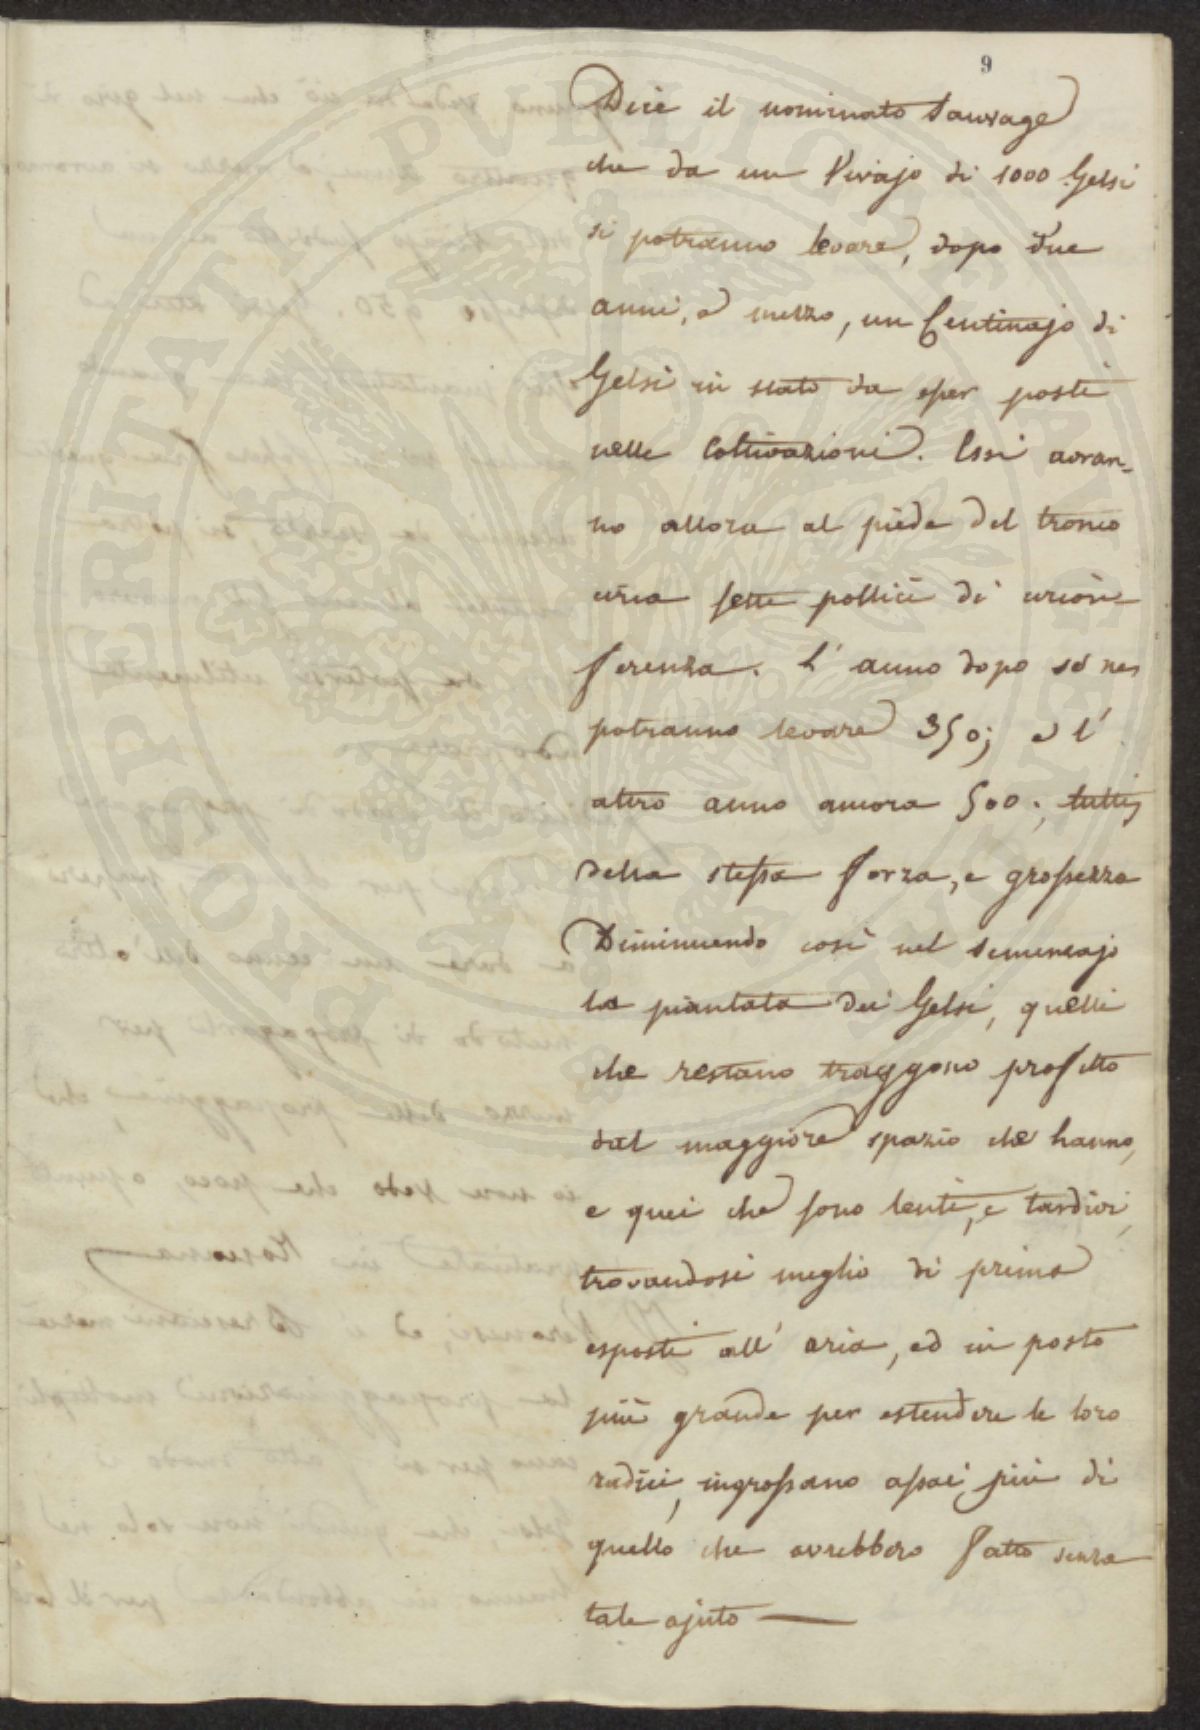 9
Dice il nominato Sauvage
che da un Vivajo di 1000 Gelsi
si potranno levare, dopo due
anni, e mezzo, un Centinajo di
Gelsi in stato da esser posti
nelle Coltivazioni. Essi avran-
no allora al piede del tronco
circa sette pollici di circon-
ferenza. L' anno dopo se ne
potranno levare 350; e l'
altro anno ancora 500; tutti
della stessa forza, e grossezza
Diminuendo così nel semenzajo
la piantata dei Gelsi, quelli
che restano traggono profitto
dal maggiore spazio che hanno,
e quei che sono lenti, e tardivi,
trovandosi meglio di prima
esposti all' aria, ed in posto
più grande per estendere le loro
radici, ingrossano assai più di
quello che avrebbero fatto senza
tale ajuto —
PROSPERITATI PVBLICAE AVGENDAE